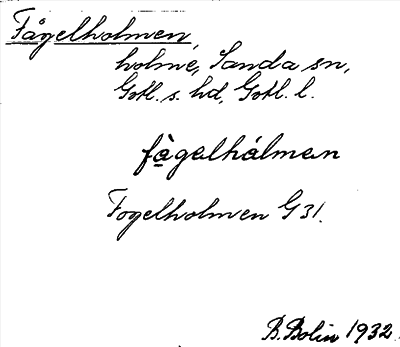 Fågelholmen,
holme, Sanda sn,
Gotl. s. hd, Gotl. l.
fàgalhálman
Fogelholmen G 31.
B. Bolin 1932.